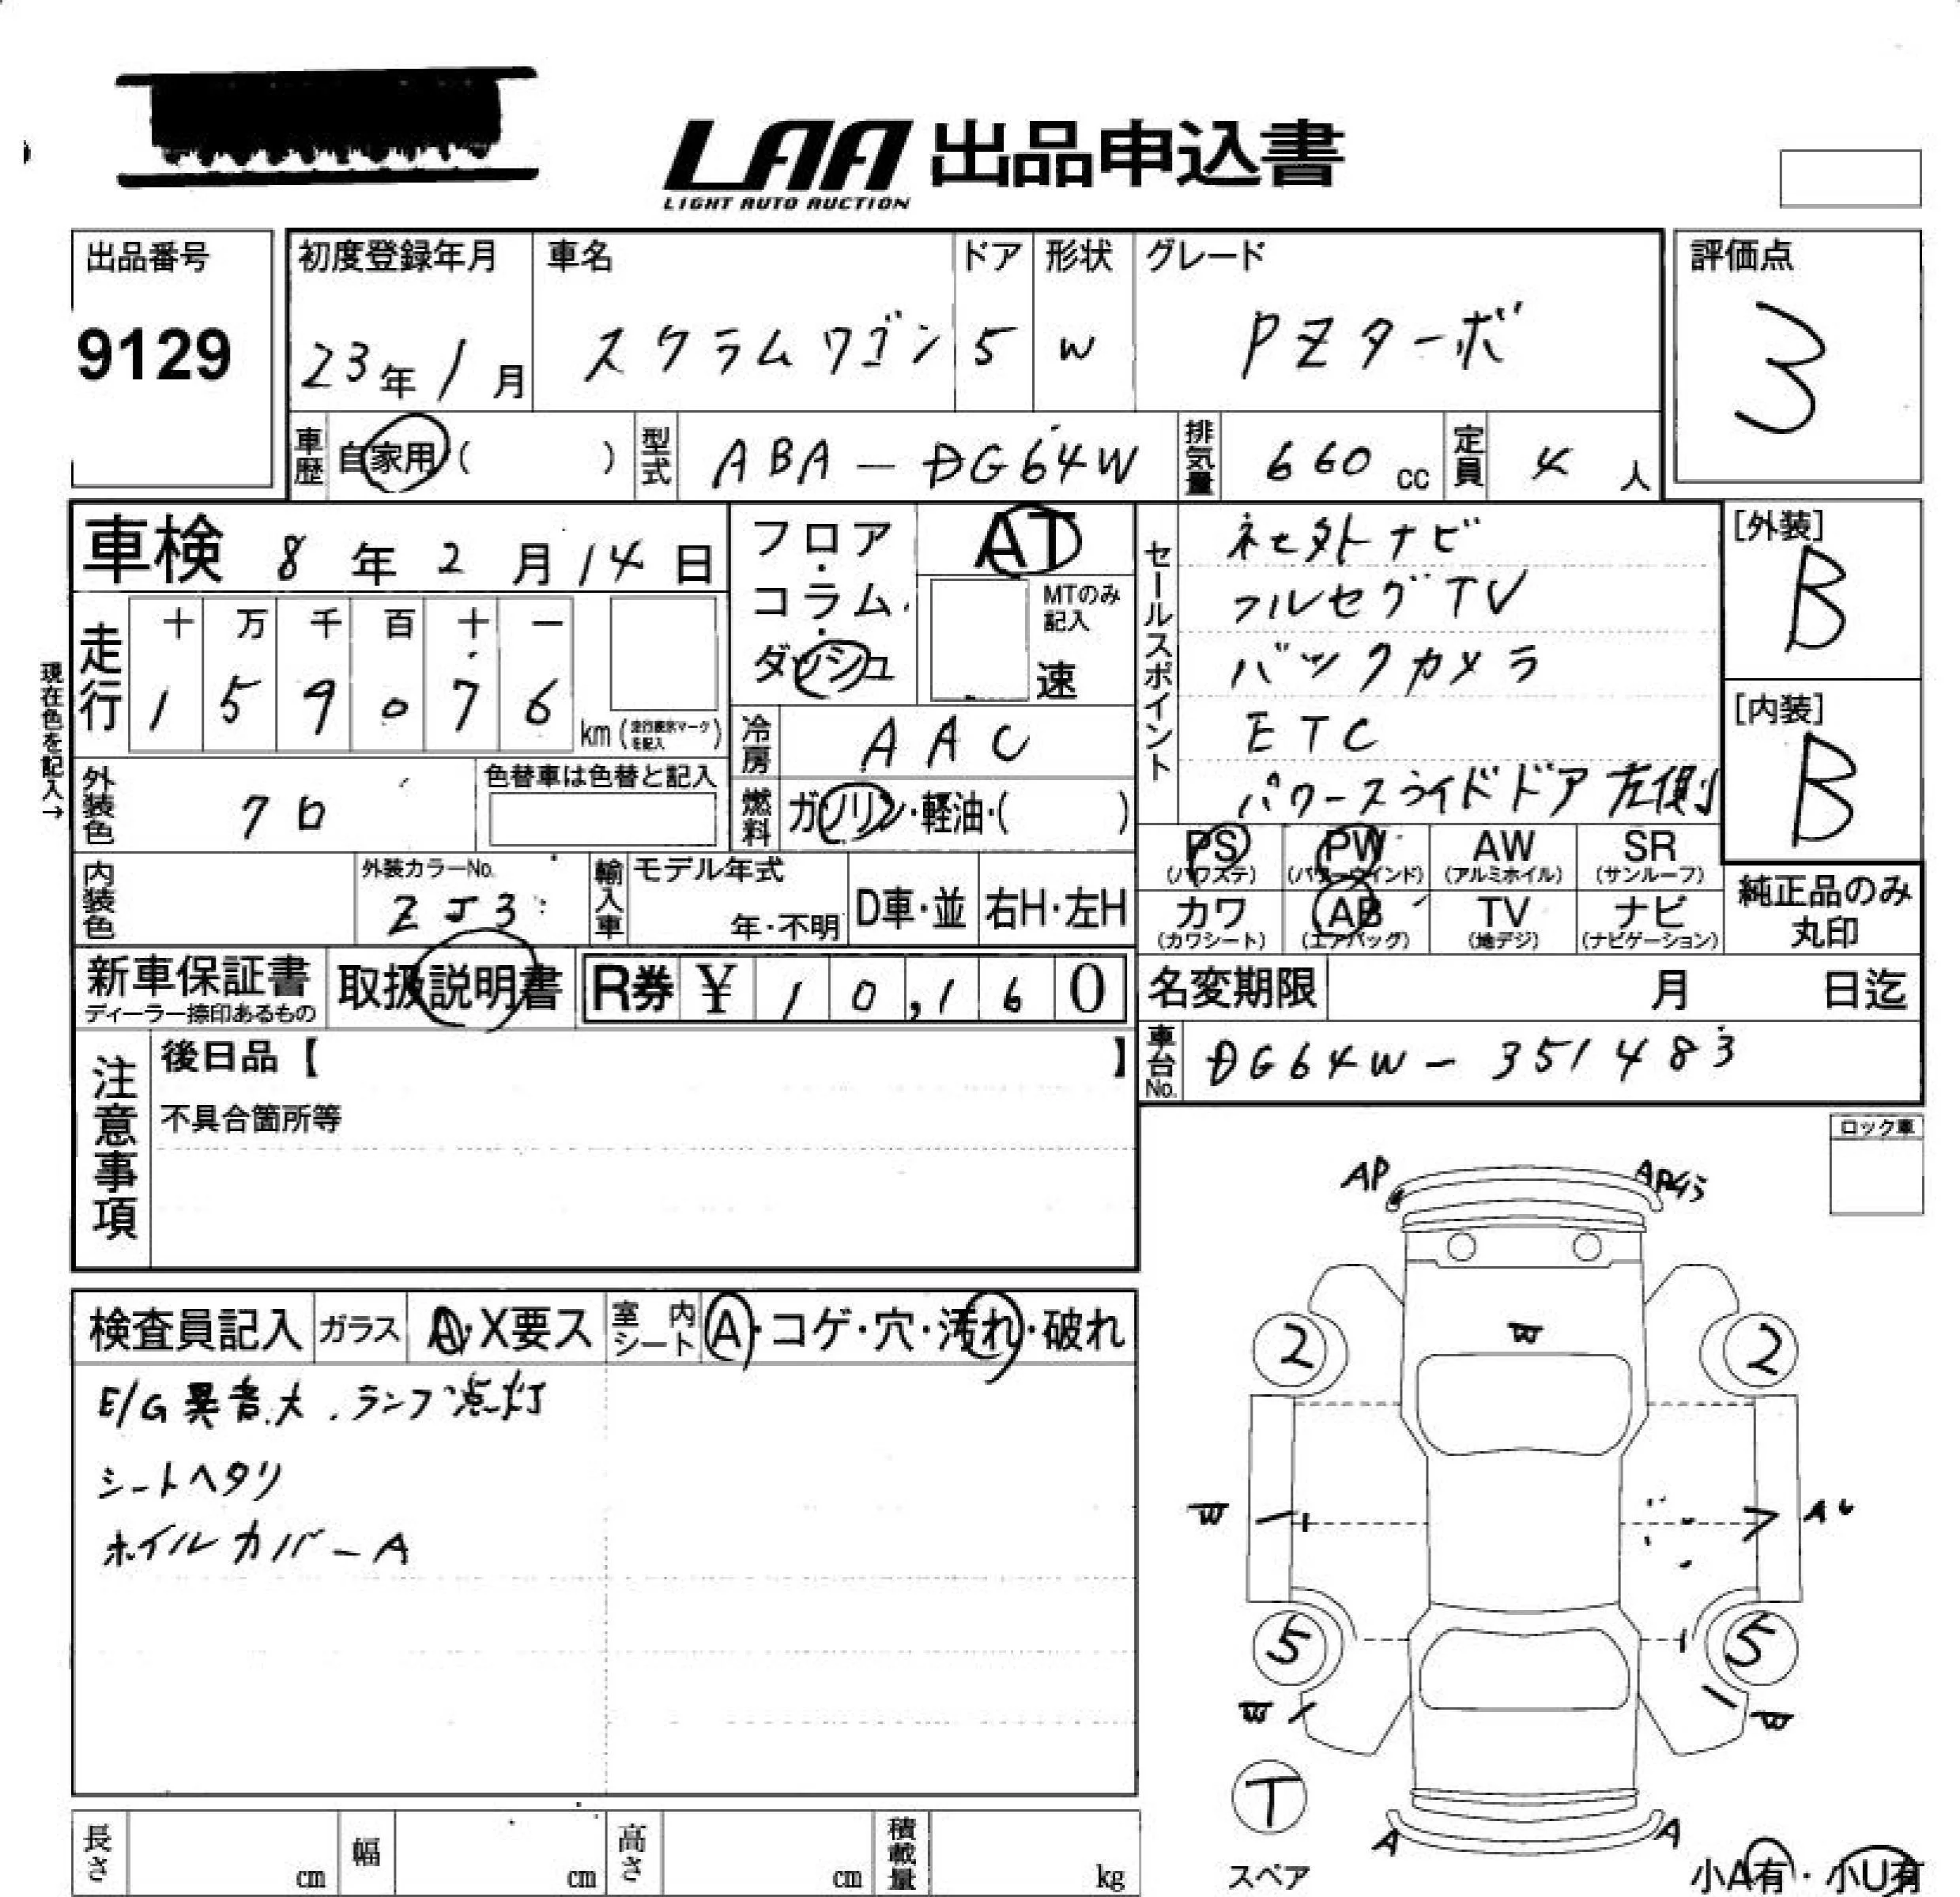 LAA 出品申込書
LIGHT AUTO AUCTION
出品番号
9129
初度登録年月
23年1月
車名
スクラムワゴン
ドア
5
形状
W
グレード
PZターボ
評価点
3
車歴
自家用( )
型式
ABA-DG64W
排気量
660 cc
定員
4 人
車検 8年2月14日
現在色を記入→
走行
十 万 千 百 十 一
1 5 9 0 7 6
km(走行表示マークを記入)
フロア・コラム・ダッシュ
AT
MTのみ記入
速
冷房
AAC
燃料
ガソリン・軽油・( )
外装色
クロ
色替車は色替と記入
内装色
外装カラーNo.
ZJ3
輸入車
モデル年式
年・不明
D車・並
右H・左H
新車保証書
ディーラー捺印あるもの
取扱説明書
R券 ¥ 10,160
セールスポイント
社外ナビ
フルセグTV
バックカメラ
ETC
パワースライドドア 左側
[外装]
B
[内装]
B
PS
(パワステ)
PW
(パワーウインド)
AW
(アルミホイル)
SR
(サンルーフ)
カワ
(カワシート)
AB
(エアバッグ)
TV
(地デジ)
ナビ
(ナビゲーション)
純正品のみ
丸印
名変期限 月 日迄
車台No.
DG64W-351483
注意事項
後日品【 】
不具合箇所等
ロック車
検査員記入
ガラス
A・X要ス
室内シート
A・コゲ・穴・汚れ・破れ
E/G異音大.ランプ点灯
シートヘタリ
ホイルカバーA
AP
W
2
2
W
5
5
W
W
T
スペア
A
A
小A有・小U有
長さ cm
幅 cm
高さ cm
積載量 kg